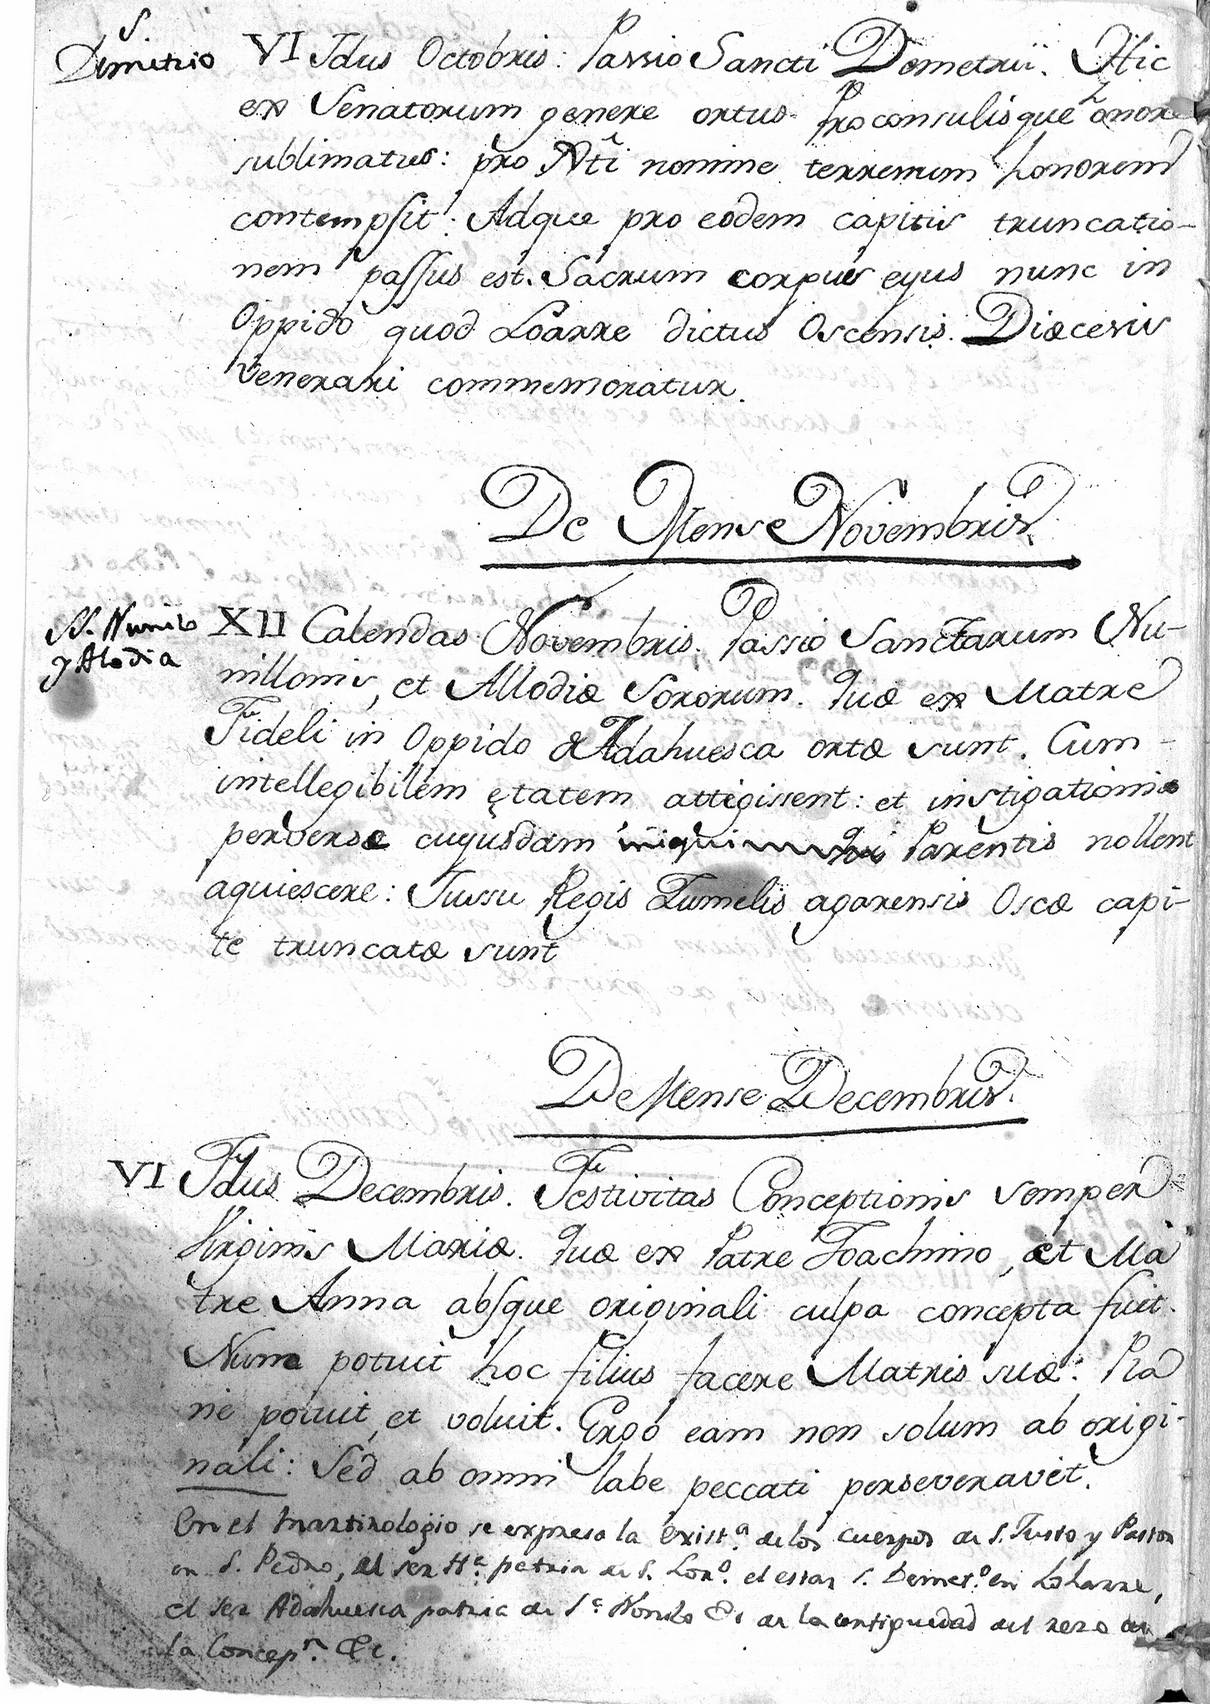 S
Dimitrio
VI Idus Octobris: Passio Sancti Demetrii. Hic
ex Senatorum genere ortus Proconsulisque honore
sublimatus: pro Xti nomine terrenum honorem
contempsit: Adque pro eodem capitis truncatio-
nem passus est. Sacrum corpus ejus nunc in
Oppido quod Loarre dictus Oscensis Diœcesis
venerari commemoratur.
De Mense Novembris.
SS. Nunilo
y Alodia
XII Calendas Novembris. Passio Sanctarum Nu-
nillonis, et Allodiæ Sororum. Quæ ex Matre
Fideli in Oppido de Adahuesca ortæ sunt. Cum
intellegibilem ętatem attigissent: et instigationis
perversæ cujusdam iniqui Parentis nollent
aquiescere: Jussu Regis Zumelis agarensis Oscæ capi-
te truncatæ sunt
De Mense Decembris.
VI Idus Decembris. Festivitas Conceptionis semper
Virginis Mariæ. Quæ ex Patre Joachino, et Ma
tre Anna absque originali culpa concepta fuit.
Num potuit hoc filius facere Matris suæ: Pla
ne potuit, et voluit. Ergo eam non solum ab origi-
nali: Sed ab omni labe peccati perseveravit.
En el Martirologio se expresa la exist.ª de los cuerpos de S. Justo y Pastor
en S. Pedro, el ser H.ª patria de S. Lor.º el estar S. Demet.º en Loharre,
el ser Adahuesca patria de S.ª Nonilo &c de la antiguedad del rezo de
la Concep.n &c.